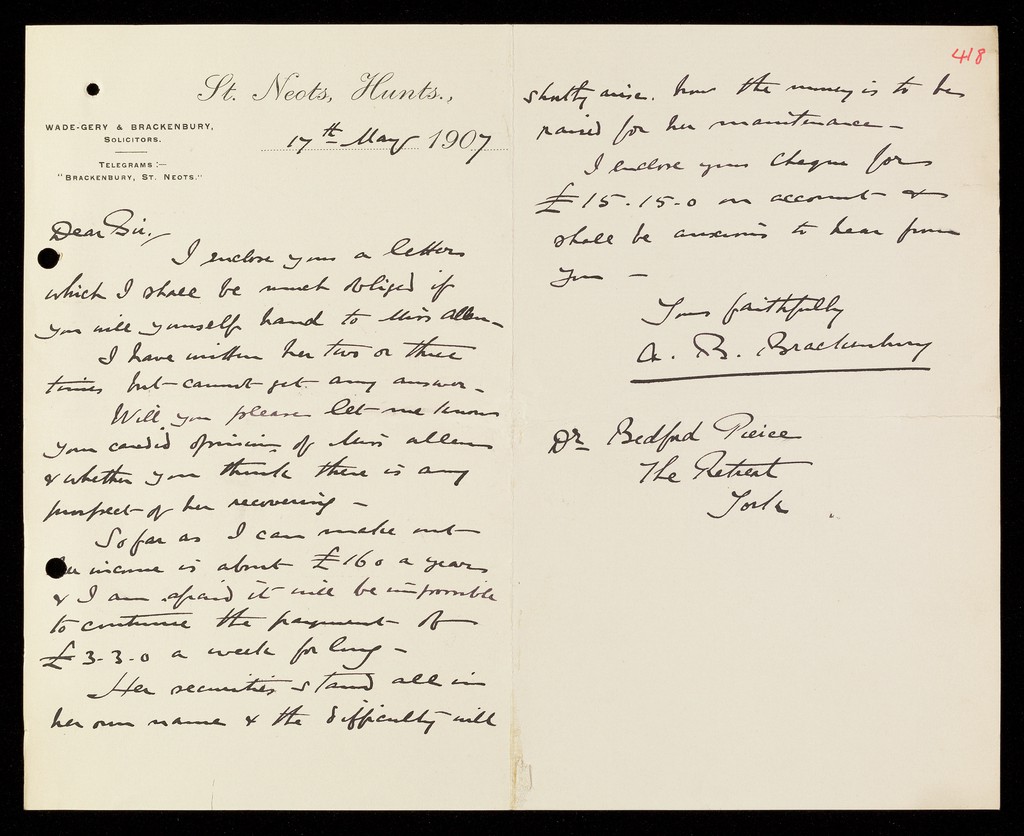 St. Neots, Hunts.,
WADE-GERY & BRACKENBURY,
SOLICITORS.
TELEGRAMS :—
"BRACKENBURY, ST. NEOTS."
17th May 1907
Dear Sir,
I enclose you a letter
which I shall be much obliged if
you will yourself hand to Miss Allen –
I have written her two or three
times but cannot get any answer –
Will you please let me know
your candid opinion of Miss Allen
& whether you think there is any
prospect of her recovering –
So far as I can make out
her income is about £160 a year
& I am afraid it will be impossible
to continue the payment of
£3-3-0 a week for long –
Her securities stand all in
her own name & the difficulty will
418
shortly arise. how the money is to be
raised for her maintenance –
I enclose you cheque for
£15-15-0 on account &
shall be anxious to hear from
you –
Yours faithfully
A. B. Brackenbury
Dr Bedford Pierce
The Retreat
York